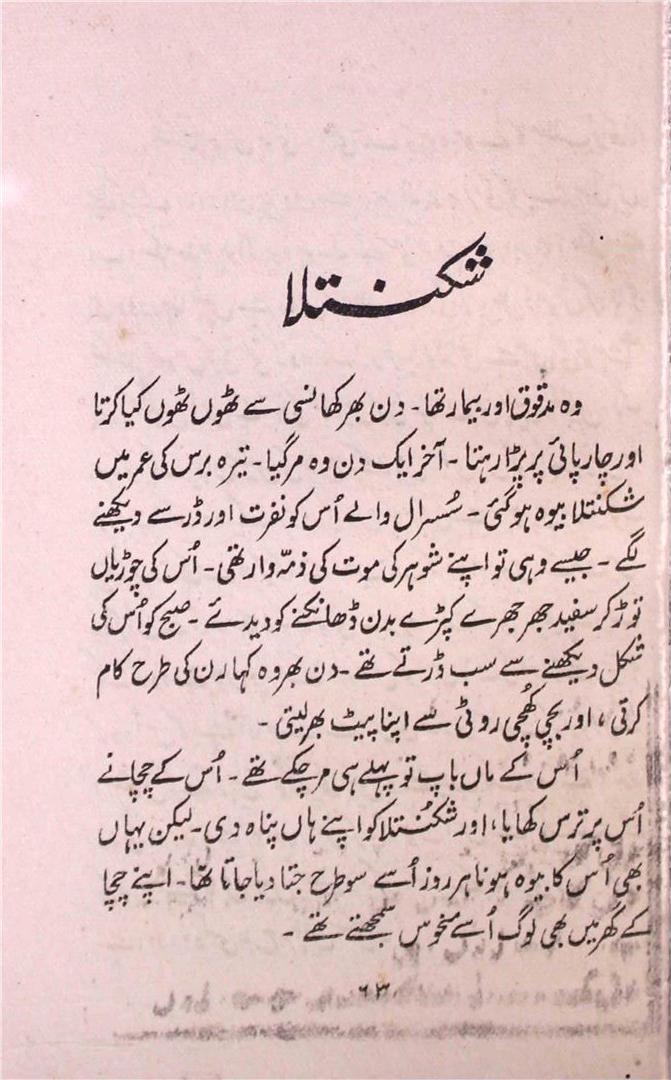 شکنتلا
وہ مدقوق اور بیمار تھا۔ دن بھر کھانسی سے ٹھوں ٹھوں کیا کرتا
اور چارپائی پر پڑا رہتا۔ آخر ایک دن وہ مر گیا۔ تیرہ برس کی عمر میں
شکنتلا بیوہ ہو گئی۔ سُسرال والے اُس کو نفرت اور ڈر سے دیکھنے
لگے۔ جیسے وہی تو اپنے شوہر کی موت کی ذمّہ وار تھی۔ اُس کی چوڑیاں
توڑ کر سفید جھرجھرے کپڑے بدن ڈھانکنے کو دیدئے۔ صبح کو اُس کی
شکل دیکھنے سے سب ڈرتے تھے۔ دن بھر وہ کہارن کی طرح کام
کرتی، اور بچی کھُچی روٹی سے اپنا پیٹ بھر لیتی۔
اُس کے ماں باپ تو پہلے ہی مر چکے تھے۔ اُس کے چچا نے
اُس پر ترس کھایا، اور شکنُتلا کو اپنے ہاں پناہ دی۔ لیکن یہاں
بھی اُس کا بیوہ ہونا ہر روز اُسے سو طرح جتا دیا جاتا تھا۔ اپنے چچا
کے گھر میں بھی لوگ اُسے منحوس سمجھتے تھے۔
۶۳